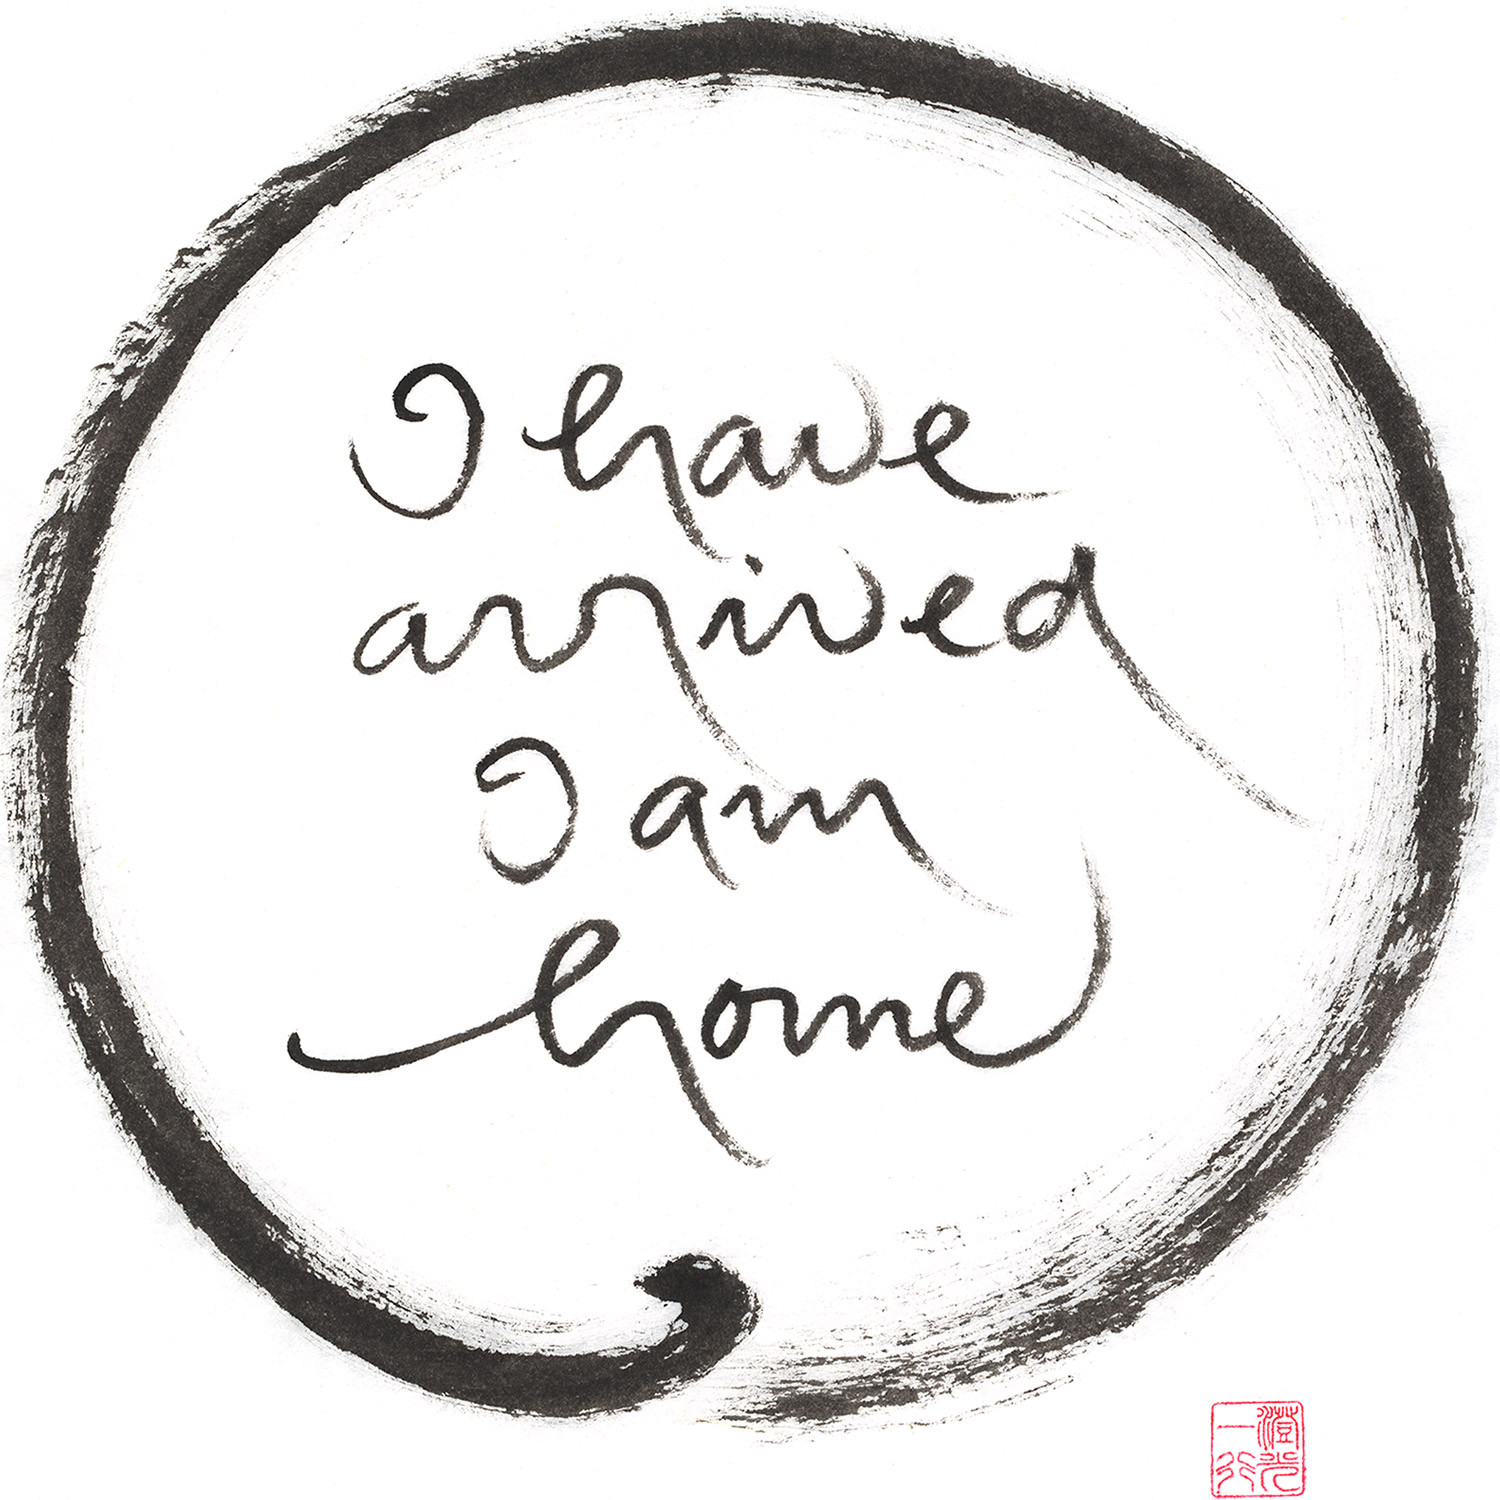 I have
arrived
I am
home
澄光
一行